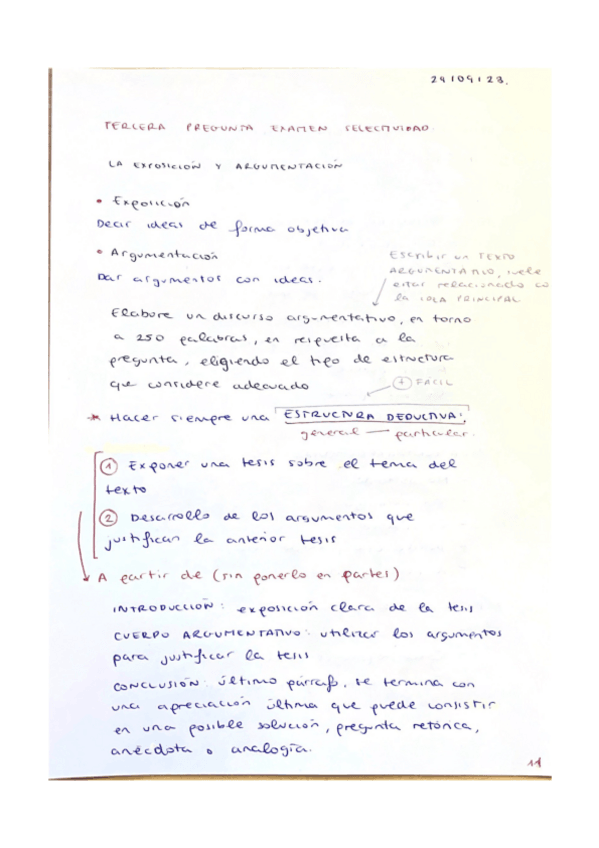 29/09/23.
TERCERA PREGUNTA EXAMEN SELECTIVIDAD.
LA EXPOSICIÓN Y ARGUMENTACIÓN
• Exposición
Decir ideas de forma objetiva
• Argumentación
Dar argumentos con ideas.
Escribir un TEXTO
ARGUMENTATIVO, suele
estar relacionado co
la IDEA PRINCIPAL
Elabore un discurso argumentativo, en torno
a 250 palabras, en respuesta a la
pregunta, eligiendo el tipo de estructura
que considere adecuado
+ FÁCIL
* Hacer siempre una ESTRUCTURA DEDUCTIVA:
general — particular.
① Exponer una tesis sobre el tema del
texto
② Desarrollo de los argumentos que
justifican la anterior tesis
A partir de (sin ponerlo en partes)
INTRODUCCIÓN: exposición clara de la tesis
CUERPO ARGUMENTATIVO: utilizar los argumentos
para justificar la tesis
CONCLUSIÓN: último párrafo, se termina con
una apreciación última que puede consistir
en una posible solución, pregunta retórica,
anécdota o analogía.
11